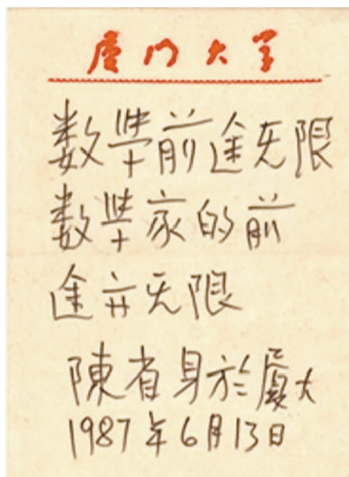 厦门大学
数学前途无限
数学家的前
途亦无限
陳省身於厦大
1987年6月13日